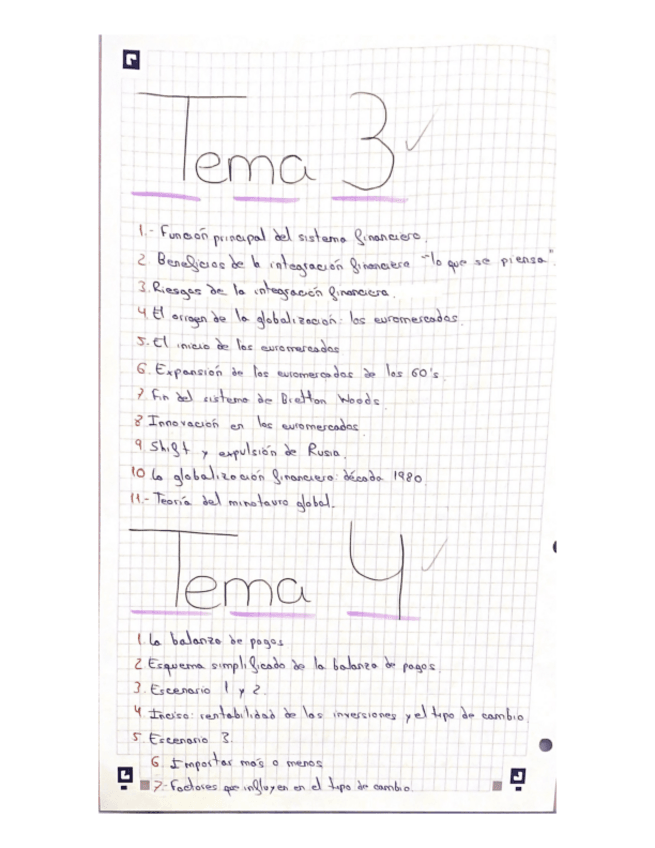 Tema 3
1.- Función principal del sistema financiero.
2. Beneficios de la integración financiera "lo que se piensa"
3. Riesgos de la integración financiera.
4 El origen de la globalización: los euromercados.
5. El inicio de los euromercados
6. Expansión de los euromercados de los 60's.
7 Fin del sistema de Bretton Woods
8 Innovación en los euromercados.
9 Shift y expulsión de Rusia.
10 La globalización financiera: década 1980.
11.- Teoría del minotauro global.
Tema 4
1. La balanza de pagos
2 Esquema simplificado de la balanza de pagos.
3. Escenario 1 y 2.
4 Inciso: rentabilidad de las inversiones y el tipo de cambio
5. Escenario 3.
6. Importar más o menos
7.- Factores que influyen en el tipo de cambio